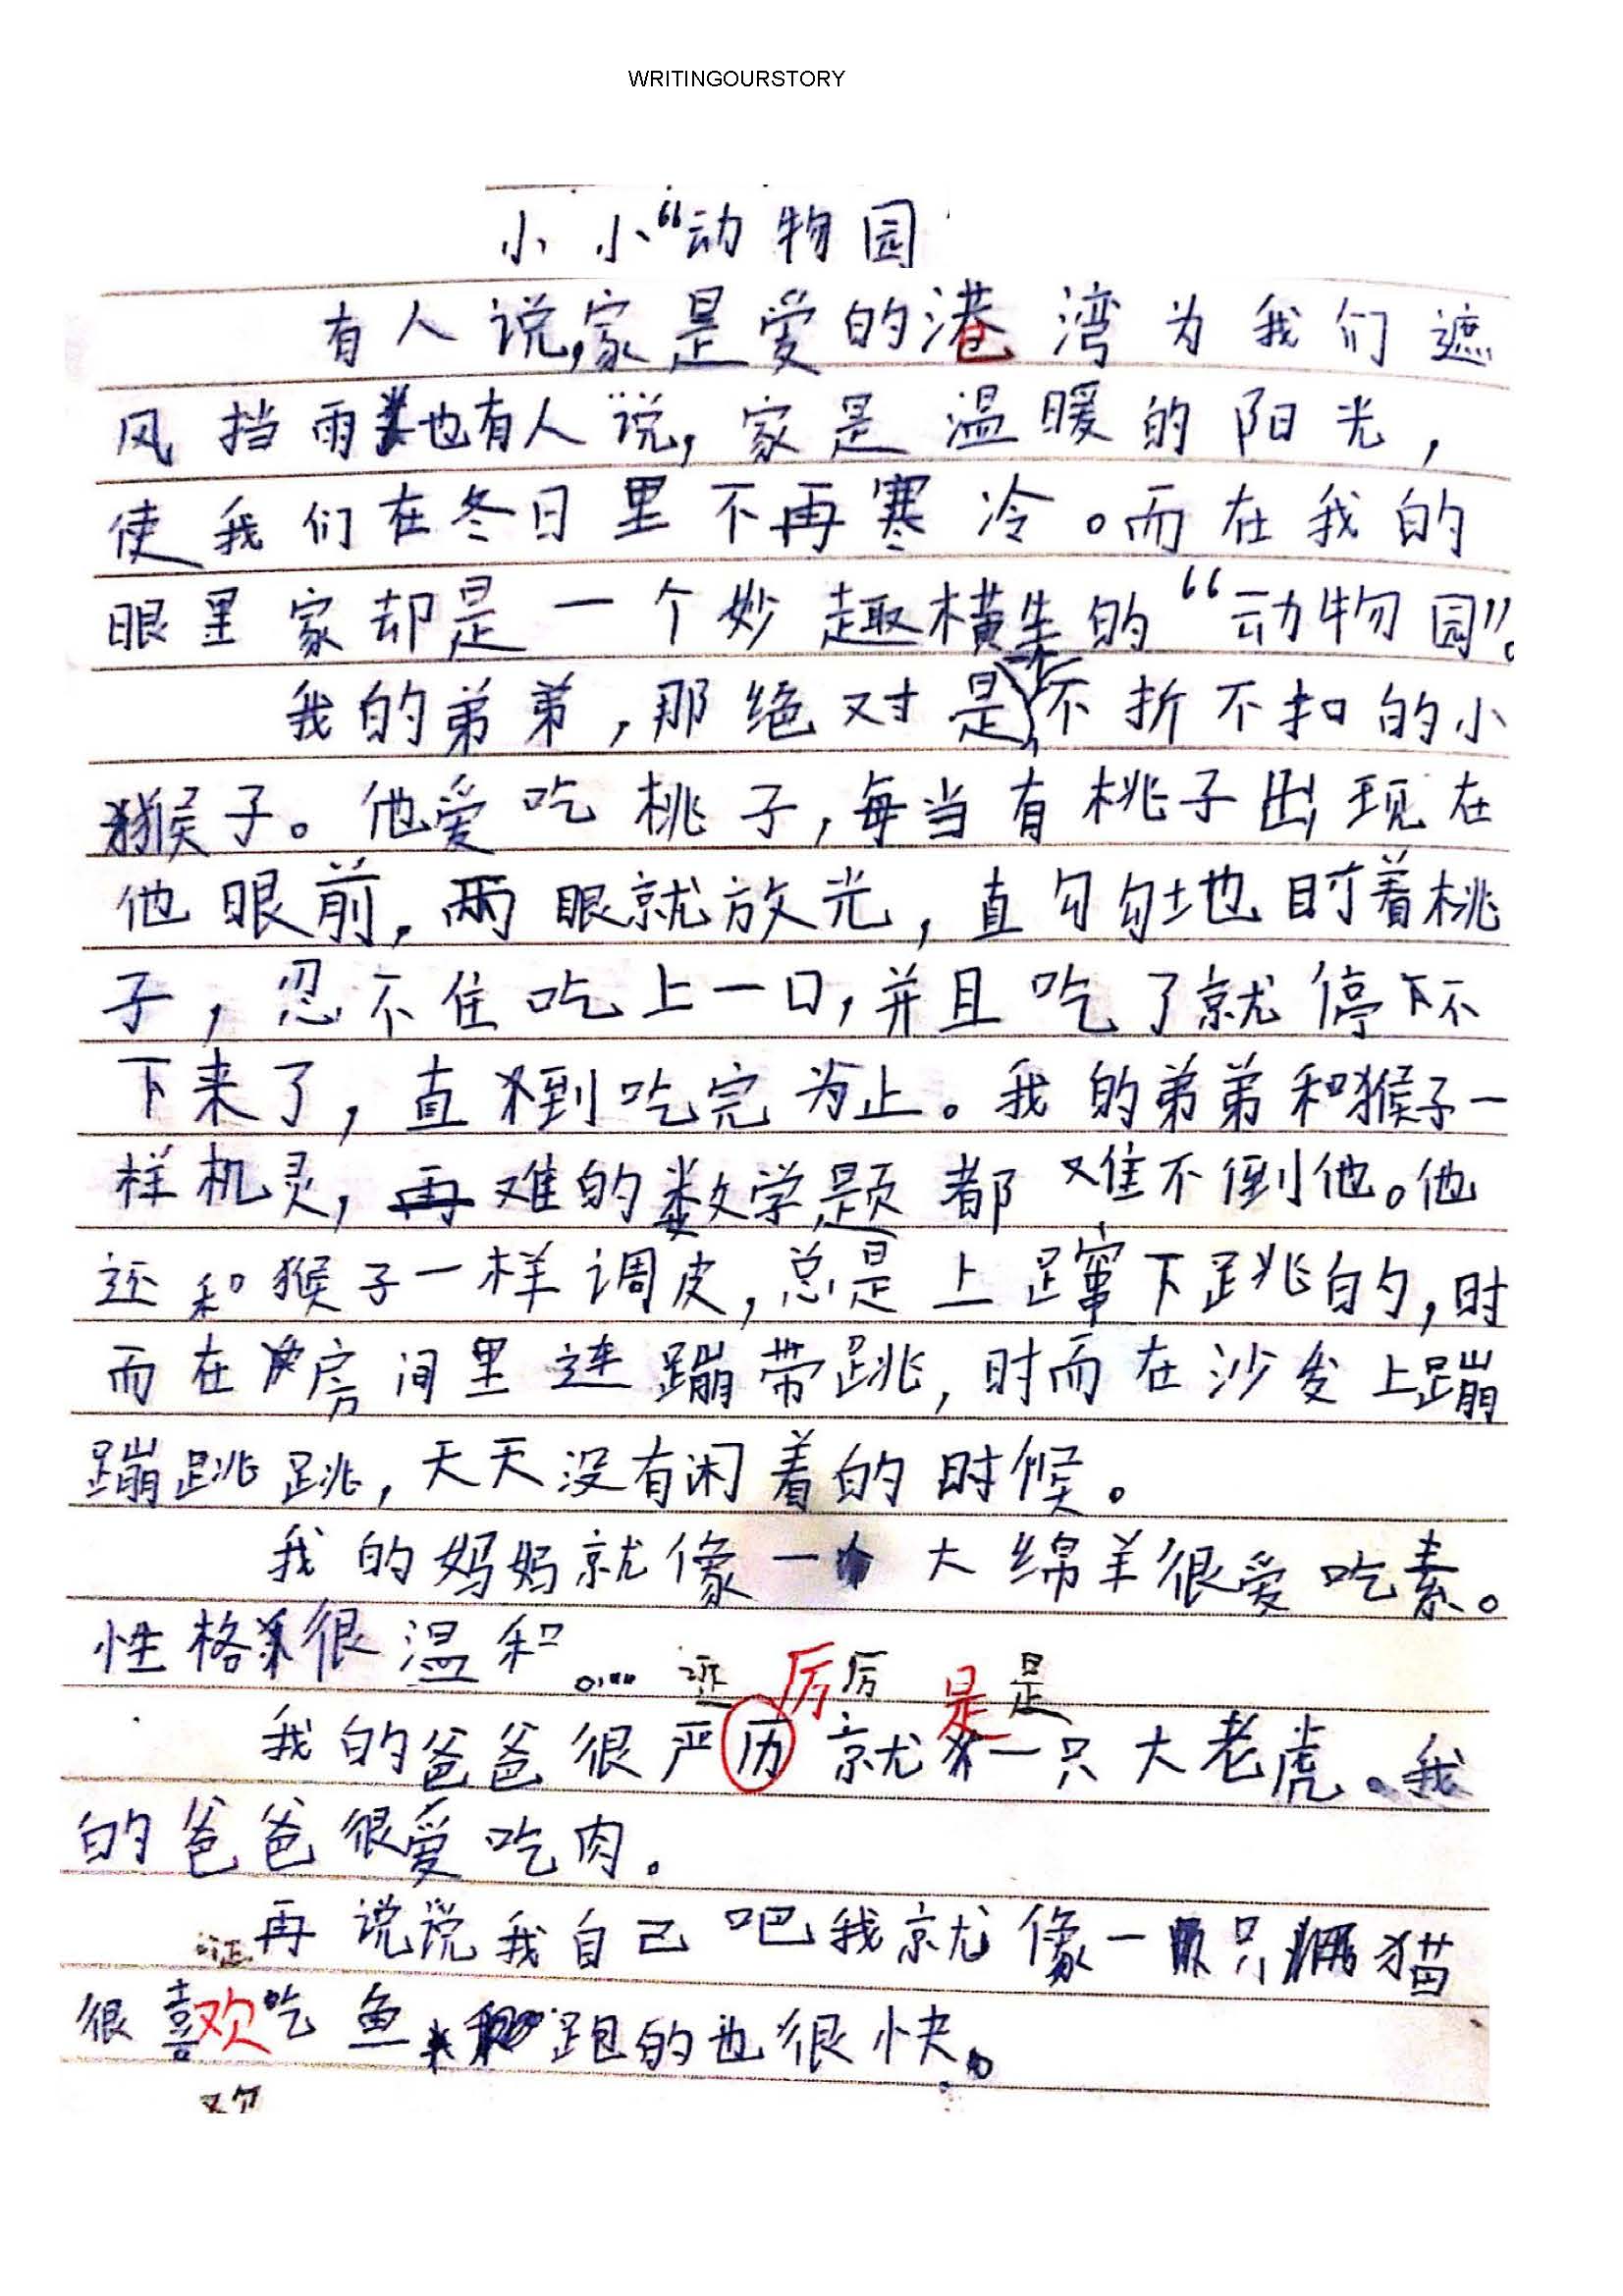 WRITINGOURSTORY
小小“动物园
有人说,家是爱的港湾为我们遮
风挡雨也有人说,家是温暖的阳光,
使我们在冬日里不再寒冷。而在我的
眼里家却是一个妙趣横生的“动物园”。
我的弟弟,那绝对是不折不扣的小
猴子。他爱吃桃子,每当有桃子出现在
他眼前,两眼就放光,直勾勾地盯着桃
子,忍不住吃上一口,并且吃了就停下不
下来了,直到吃完为止。我的弟弟和猴子一
样机灵,再难的数学题都难不倒他。他
还和猴子一样调皮,总是上蹿下跳的,时
而在房间里连蹦带跳,时而在沙发上蹦
蹦跳跳,天天没有闲着的时候。
我的妈妈就像一个大绵羊很爱吃素。
性格很温和。...
厉厉 是是
我的爸爸很严历就一只大老虎。我
的爸爸很爱吃肉。
再说说我自己吧我就像一只猫
很喜欢吃鱼跑的也很快。
欢